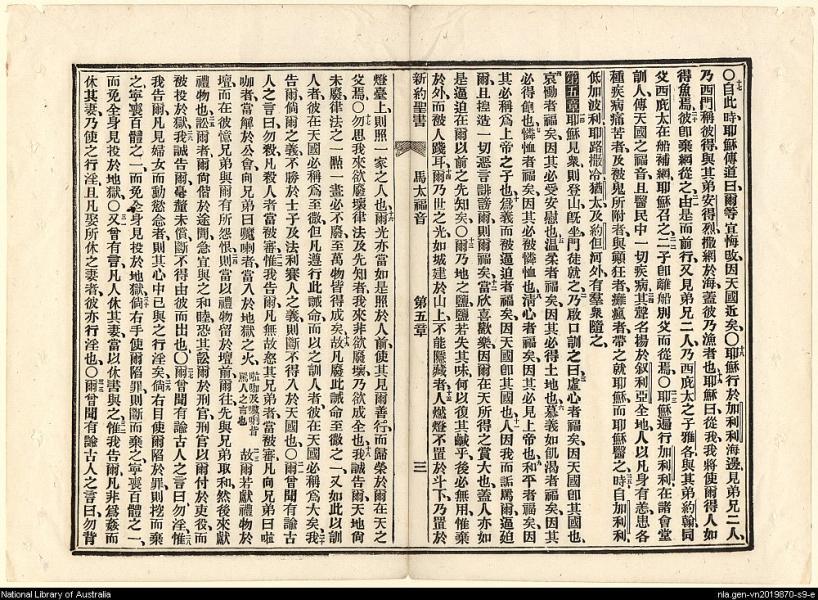 〇自此時耶穌傳道曰爾等宜悔改因天國近矣〇耶穌行於加利利海邊見弟兄二人
乃西門稱彼得與其弟安得烈撒網於海蓋彼乃漁者也耶穌曰從我我將使爾得人如
得魚焉彼卽棄網從之由是而前行又見弟兄二人乃西庇太之子雅各與其弟約翰同
父西庇太在船補網耶穌召之二子卽離船別父而從焉〇耶穌遍行加利利在諸會堂
訓人傳天國之福音且醫民中一切疾病其聲名揚於叙利亞全地人以凡身有恙患各
種疾病痛苦者及被鬼所附者與癲狂者癱瘋者帶之就耶穌而耶穌醫之時自加利利
低加波利耶路撒冷猶太及約但河外有羣衆隨之
第五章耶穌見衆則登山旣坐門徒就之乃啟口訓之曰虛心者福矣因天國卽其國也
哀慟者福矣因其必受安慰也溫柔者福矣因其必得土地也慕義如飢渴者福矣因其
必得飽也憐恤者福矣因其必被憐恤也清心者福矣因其必見上帝也和平者福矣因
其必稱爲上帝之子也爲義而被逼迫者福矣因天國卽其國也人因我而詬罵爾逼迫
爾且揑造一切惡言誹謗爾則爾福矣當欣喜歡樂因爾在天所得之賞大也蓋人亦如
是逼迫在爾以前之先知矣〇爾乃地之鹽鹽若失其味何以復其鹹乎後必無用惟棄
於外而被人踐耳爾乃世之光如城建於山上不能隱藏者人燃燈不置於斗下乃置於
新約聖書 馬太福音 第五章 三
燈臺上則照一家之人也爾光亦當如是照於人前使其見爾善行而歸榮於爾在天之
父焉〇勿思我來欲廢壞律法及先知者我來非欲廢壞乃欲成全也我誠告爾天地尙
未廢律法之一點一畫必不廢至萬物皆得成矣故凡廢此誡命至微之一又如此以訓
人者彼在天國必稱爲至微但凡遵行此誡命而以之訓人者彼在天國必稱爲大矣我
告爾倘爾之義不勝於士子及法利賽人之義則斷不得入於天國也〇爾曾聞有諭古
人之言曰勿殺凡殺人者當被審惟我告爾凡無故怒其兄弟者當被審凡向兄弟曰㗂
咖者當解於公會向兄弟曰魔唎者當入於地獄之火㗂咖及魔唎皆罵人之言也故爾若獻禮物於
壇而在彼憶兄弟與爾有所怨恨則當以禮物留於壇前爾往先與兄弟取和然後來獻
禮物也訟爾者爾尙偕於途間急宜與之和睦恐其訟爾於刑官刑官以爾付於吏役而
被投於獄我誠告爾毫釐未償斷不得由彼而出也〇爾曾聞有諭古人之言曰勿淫惟
我告爾凡見婦女而動慾念者則其心中已與之行淫矣倘右目使爾陷於罪則挖而棄
之寧喪百體之一而免全身見投於地獄倘右手使爾陷罪則斷而棄之寧喪百體之一
而免全身見投於地獄〇又曾有言凡人休其妻當以休書與之惟我告爾凡非爲姦而
休其妻乃使之行淫且凡娶所休之妻者彼亦行淫也〇爾曾聞有諭古人之言曰勿背
National Library of Australia
nla.gen-vn2019870-s9-e